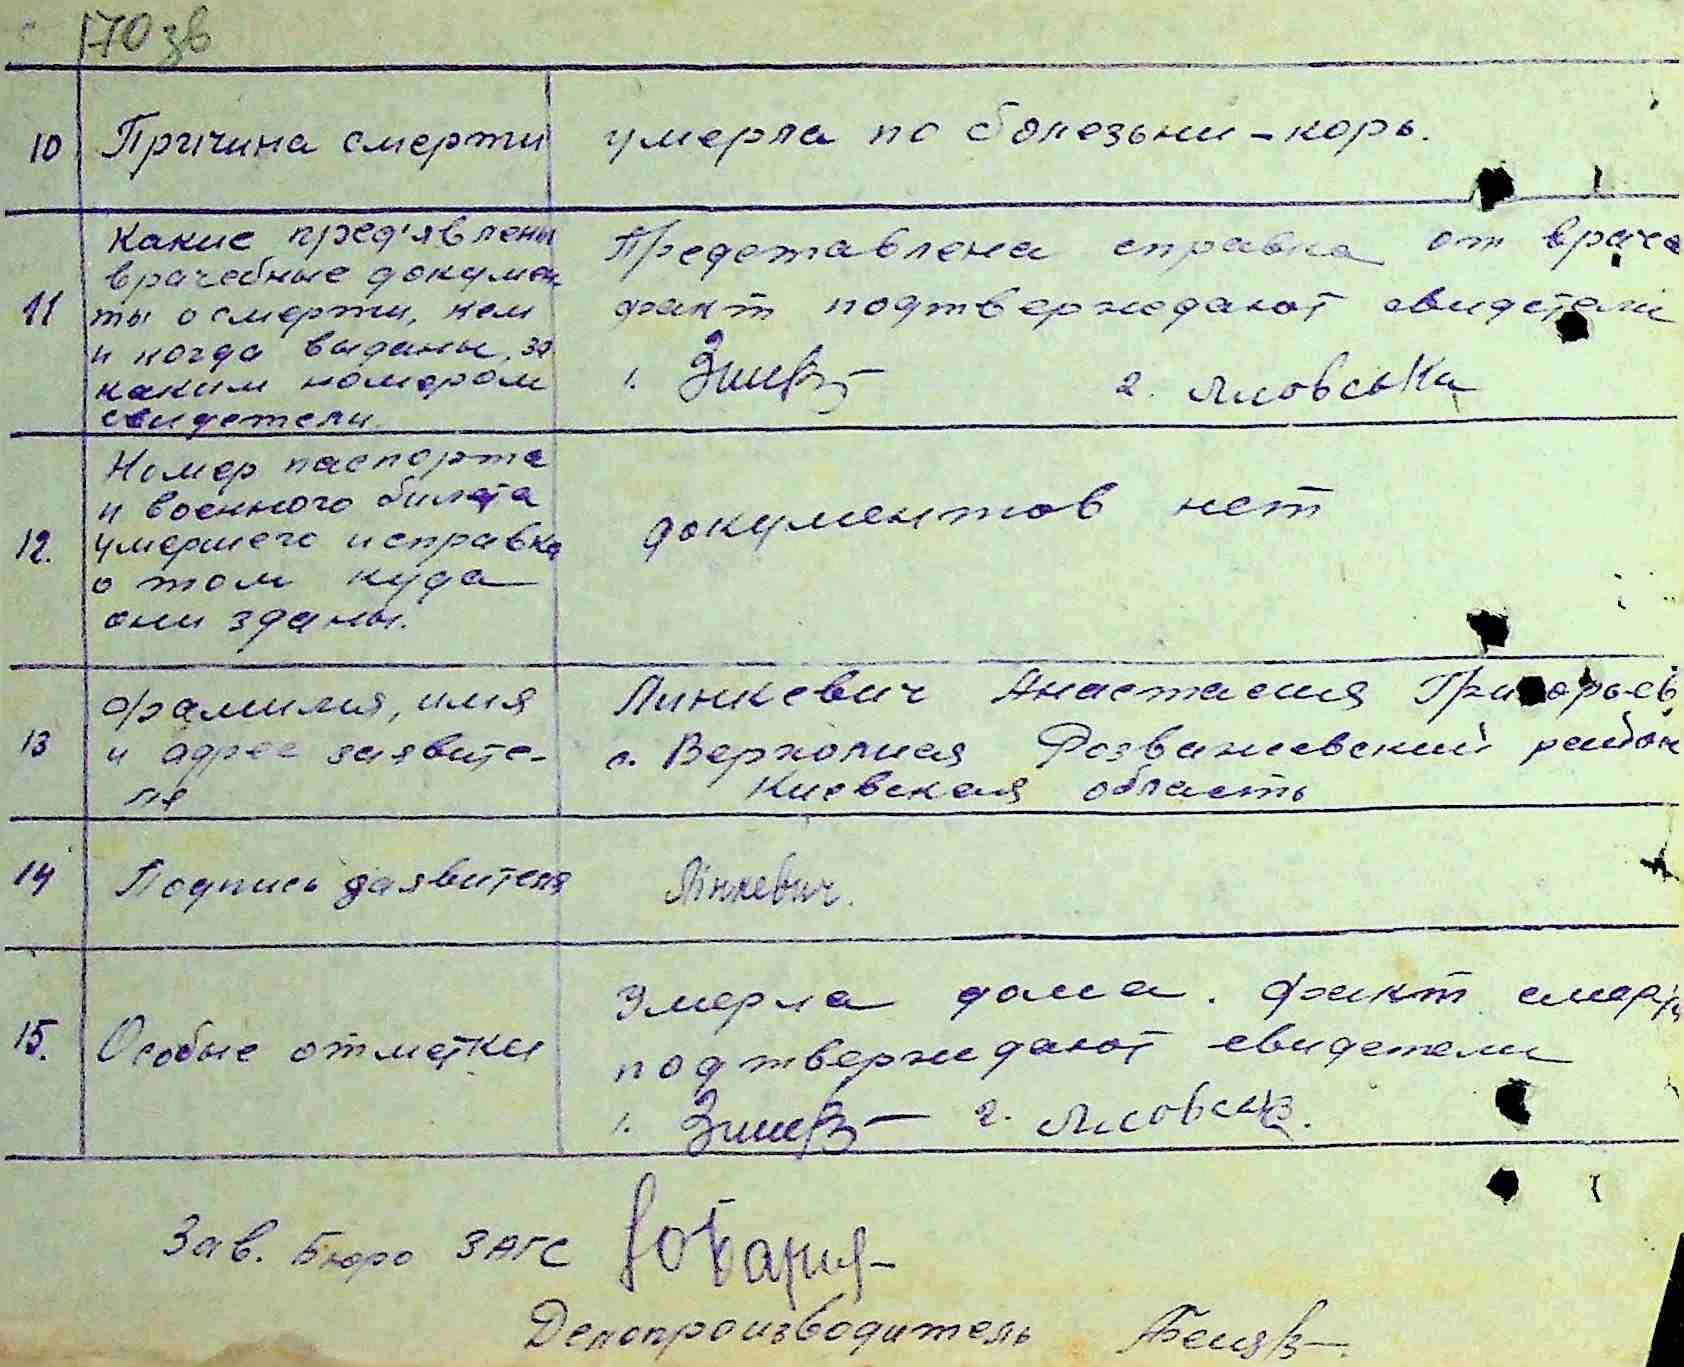 170 зв
10 Причина смерти умерла по болезьни - корь.
11 Какие пред'явлены
врачебные докумен
ты о смерти, кем
и когда выданы, за
каким номером
свидетели.
Представлена справка от врача
факт подтверждают свидетели
1. 2.
12. Номер паспорта
и военного билета
умершего и справка
о том куда
они зданы.
документов нет
13 Фамилия, имя
и адрес заявите-
ля
Линкевич Анастасия Григорьев
с. Верхолися Розважевский район
Киевская область
14 Подпись заявителя Лінкевич.
15. Особые отметки
Умерла дома. Факт смерти
подтверждают свидетели
1. 2.
Зав. Бюро ЗАГС
Делопроизводитель